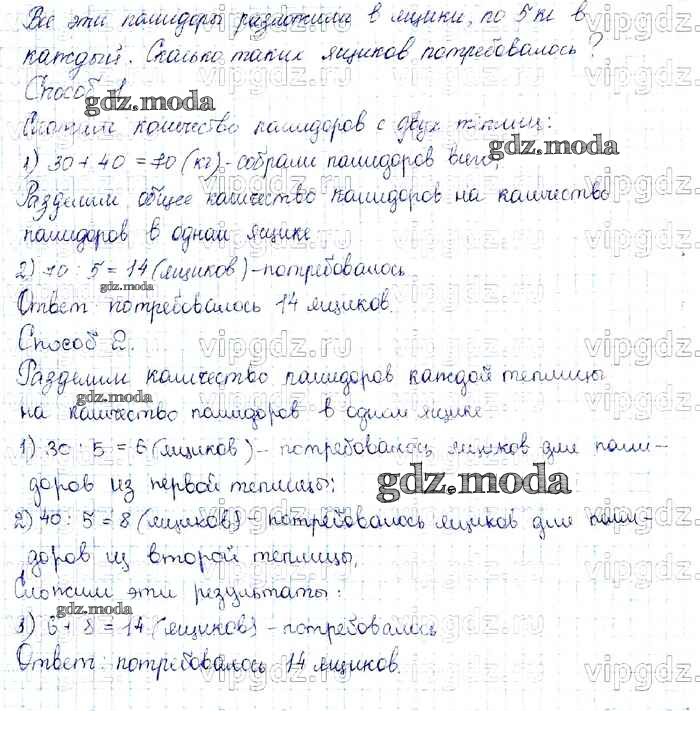 Все эти помидоры разложили в ящики, по 5 кг в
каждый. Сколько таких ящиков потребовалось?
Способ 1.
gdz.moda
Сложим количество помидоров с двух теплиц:
1) 30 + 40 = 70 (кг) - собрали помидоров всего;
gdz.moda
Разделим общее количество помидоров на количество
помидоров в одном ящике
2) 70 : 5 = 14 (ящиков) - потребовалось
gdz.moda
Ответ потребовалось 14 ящиков.
Способ 2.
gdz.moda
Разделим количество помидоров каждой теплицы
на количество помидоров в одном ящике
1) 30 : 5 = 6 (ящиков) - потребовалось ящиков для поми-
доров из первой теплицы;
gdz.moda
2) 40 : 5 = 8 (ящиков) - потребовалось ящиков для поми-
доров из второй теплицы,
Сложим эти результаты:
gdz.moda
3) 6 + 8 = 14 (ящиков) - потребовалось
Ответ: потребовалось 14 ящиков.
gdz.moda
vipgdz.ru